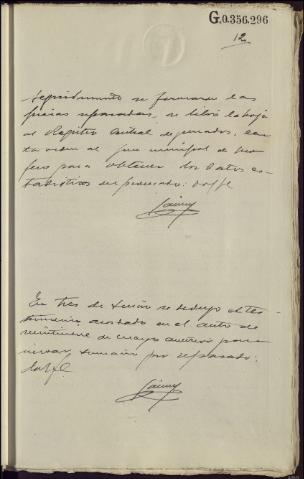 G.0.356.296
12
Seguidamente se formaron las
piezas separadas, se libró la hoja
al Registro Central de penados, car
ta orden al juez municipal de
para obtener los datos es
tadísticos del procesado: doy fe
En tres de Junio se dedujo el tes
timonio acordado en el auto de
veintinueve de mayo anterior para
sumario por separado:
doy fe.